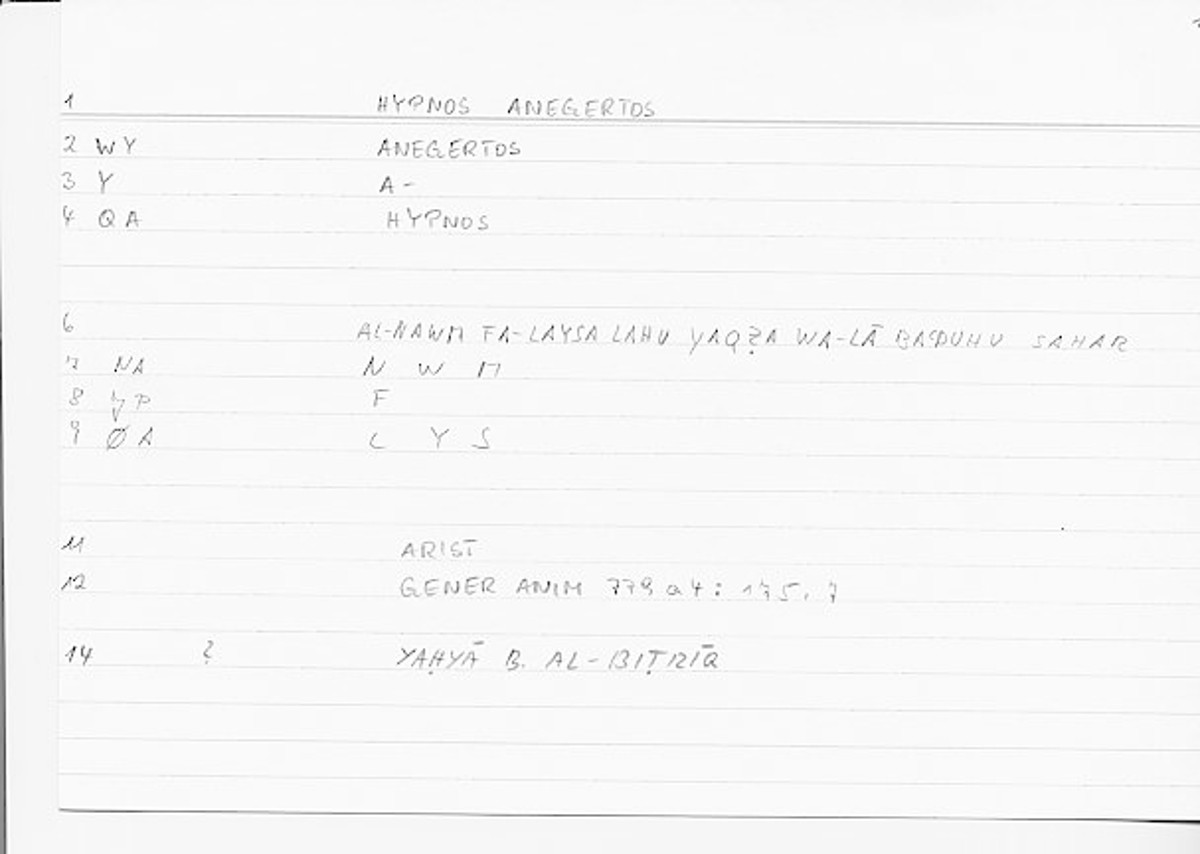 1 HYPNOS ANEGERTOS
2 WY ANEGERTOS
3 Y A-
4 QA HYPNOS
6 AL-NAWM FA-LAYSA LAHU YAQẒA WA-LĀ BAꜤDUHU SAHAR
7 NA N W M
8 F
9 ØA L Y S
11 ARIST
12 GENER ANIM 779 a 4 : 175, 7
14 ? YAḤYĀ B. AL-BIṬRĪQ